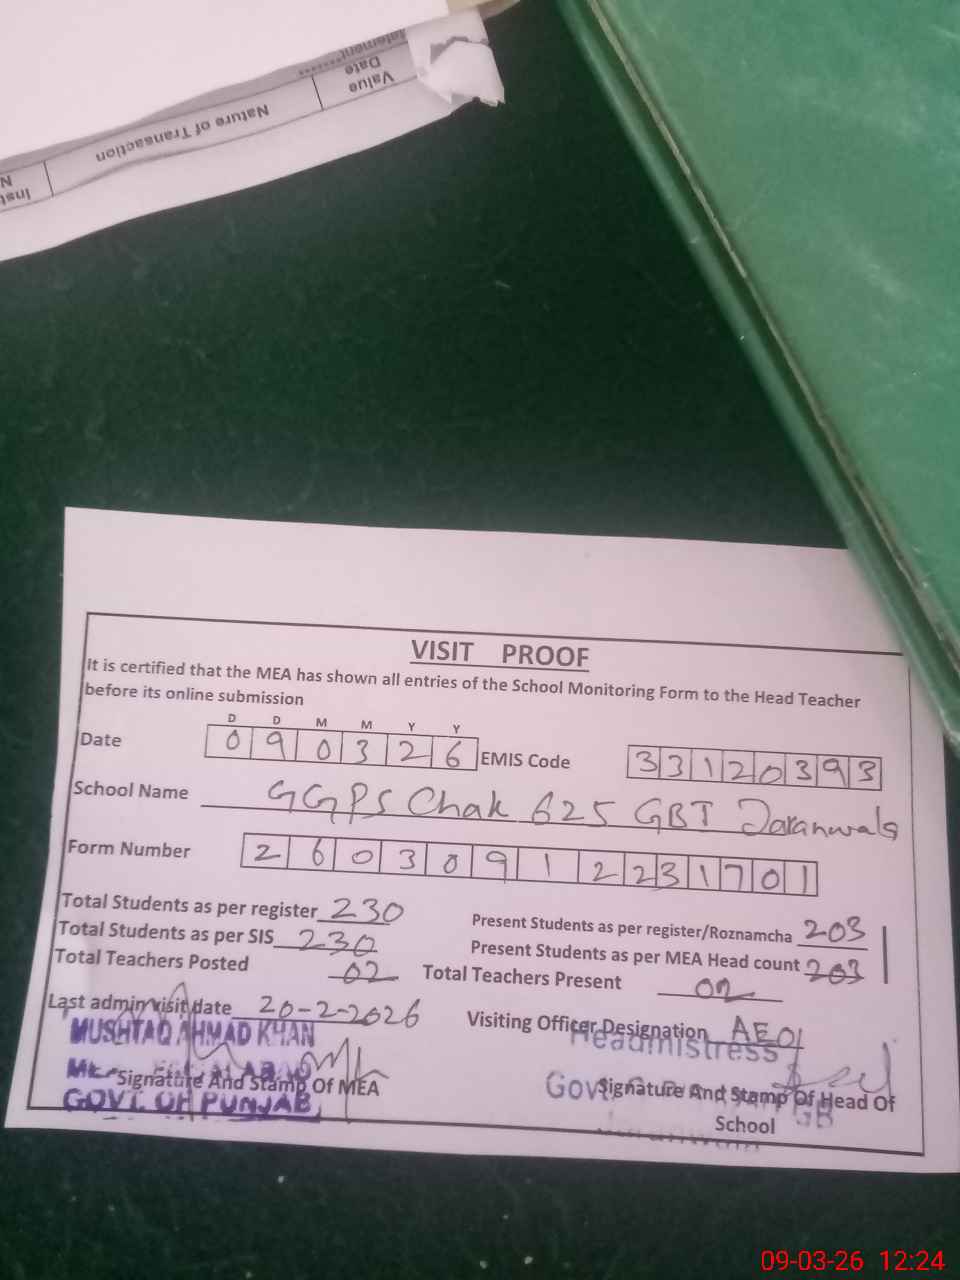 Statement
Value
Date
Nature of Transaction
Inst
N
VISIT PROOF
It is certified that the MEA has shown all entries of the School Monitoring Form to the Head Teacher
before its online submission
D D M M Y Y
Date 0 9 0 3 2 6 EMIS Code 3 3 1 2 0 3 9 3
School Name GGPS Chak 625 GBT Jaranwala
Form Number 2 6 0 3 0 9 1 2 2 3 1 7 0 1
Total Students as per register 230 Present Students as per register/Roznamcha 203
Total Students as per SIS 230 Present Students as per MEA Head count 203
Total Teachers Posted 02 Total Teachers Present 02
Last admin visit date 20-2-2026 Visiting Officer Designation AEO
MUSHTAQ AHMAD KHAN Headmistress
Signature And Stamp Of MEA Govt Signature And Stamp Of Head Of
GOVT. OF PUNJAB GB
School
09-03-26 12:24